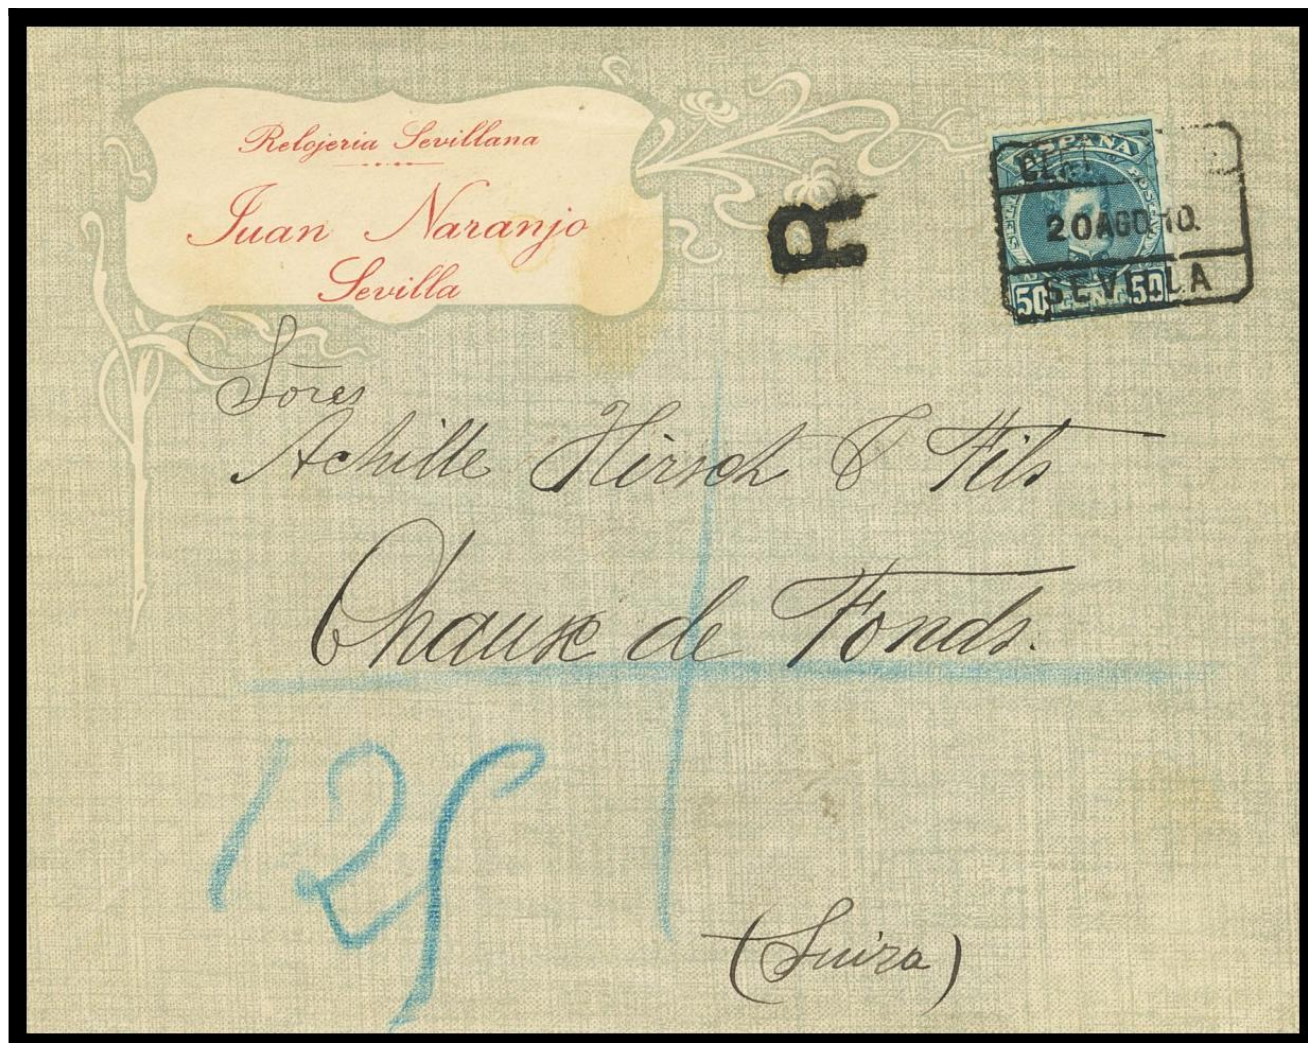 Relojeria Sevillana
Juan Naranjo
Sevilla
R
ESPAÑA
20 AGO. 10.
SEVILLA
50 CENT 50
Sōres
Achille Hirsch & Fils
Chaux de Fonds.
125
(Suiza)